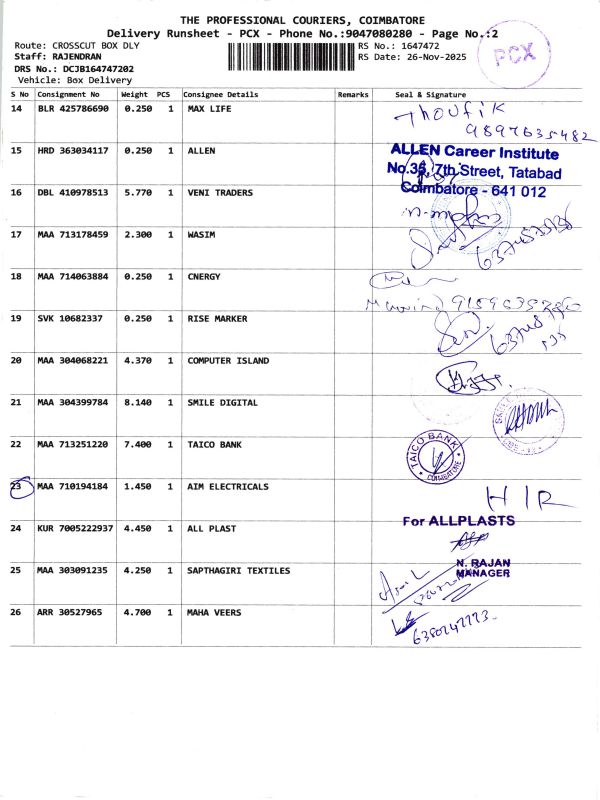 THE PROFESSIONAL COURIERS, COIMBATORE
Delivery Runsheet - PCX - Phone No.:9047080280 - Page No.:2
Route: CROSSCUT BOX DLY
RS No.: 1647472
Staff: RAJENDRAN
RS Date: 26-Nov-2025
DRS No.: DCJB164747202
Vehicle: Box Delivery
PCX
S No Consignment No Weight PCS Consignee Details Remarks Seal & Signature
14 BLR 425786690 0.250 1 MAX LIFE
Thoufik
9897635482
15 HRD 363034117 0.250 1 ALLEN
ALLEN Career Institute
No.35, 7th Street, Tatabad
Coimbatore - 641 012
16 DBL 410978513 5.770 1 VENI TRADERS
17 MAA 713178459 2.300 1 WASIM
18 MAA 714063884 0.250 1 CNERGY
19 SVK 10682337 0.250 1 RISE MARKER
20 MAA 304068221 4.370 1 COMPUTER ISLAND
21 MAA 304399784 8.140 1 SMILE DIGITAL
22 MAA 713251220 7.400 1 TAICO BANK
TAICO BANK
COIMBATORE
23 MAA 710194184 1.450 1 AIM ELECTRICALS
HIR
24 KUR 7005222937 4.450 1 ALL PLAST
For ALLPLASTS
N. RAJAN
MANAGER
25 MAA 303091235 4.250 1 SAPTHAGIRI TEXTILES
26 ARR 30527965 4.700 1 MAHA VEERS